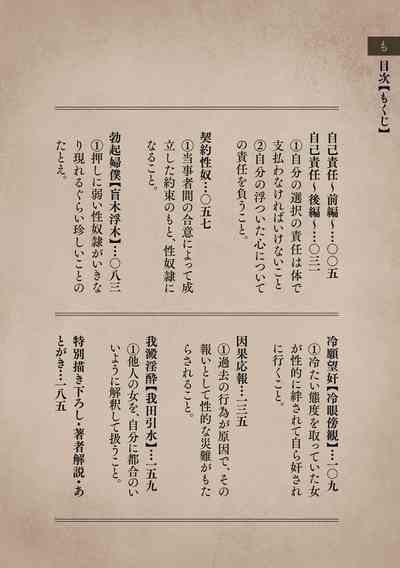 も
目次【もくじ】
自己責任～前編～…〇〇五
自己責任～後編～…〇三一
①自分の選択の責任は体で
支払わなければいけないこと
②自分の浮ついた心について
の責任を負うこと。
契約性奴…〇五七
①当事者間の合意によって成
立した約束のもと、性奴隷に
なること。
勃起婦僕【盲亀浮木】…〇八三
①押しに弱い性奴隷がいきな
り現れるぐらい珍しいことの
たとえ。
冷願望好【冷眼傍観】…一〇九
①冷たい態度を取っていた女
が性的に絆されて自ら姦され
に行くこと。
因果応報…一三五
①過去の行為が原因で、その
報いとして性的な災難がもた
らされること。
我澱淫酔【我田引水】…一五九
①他人の女を、自分に都合のい
いように解釈して扱うこと。
特別描き下ろし・著者解説・あ
とがき…一八五